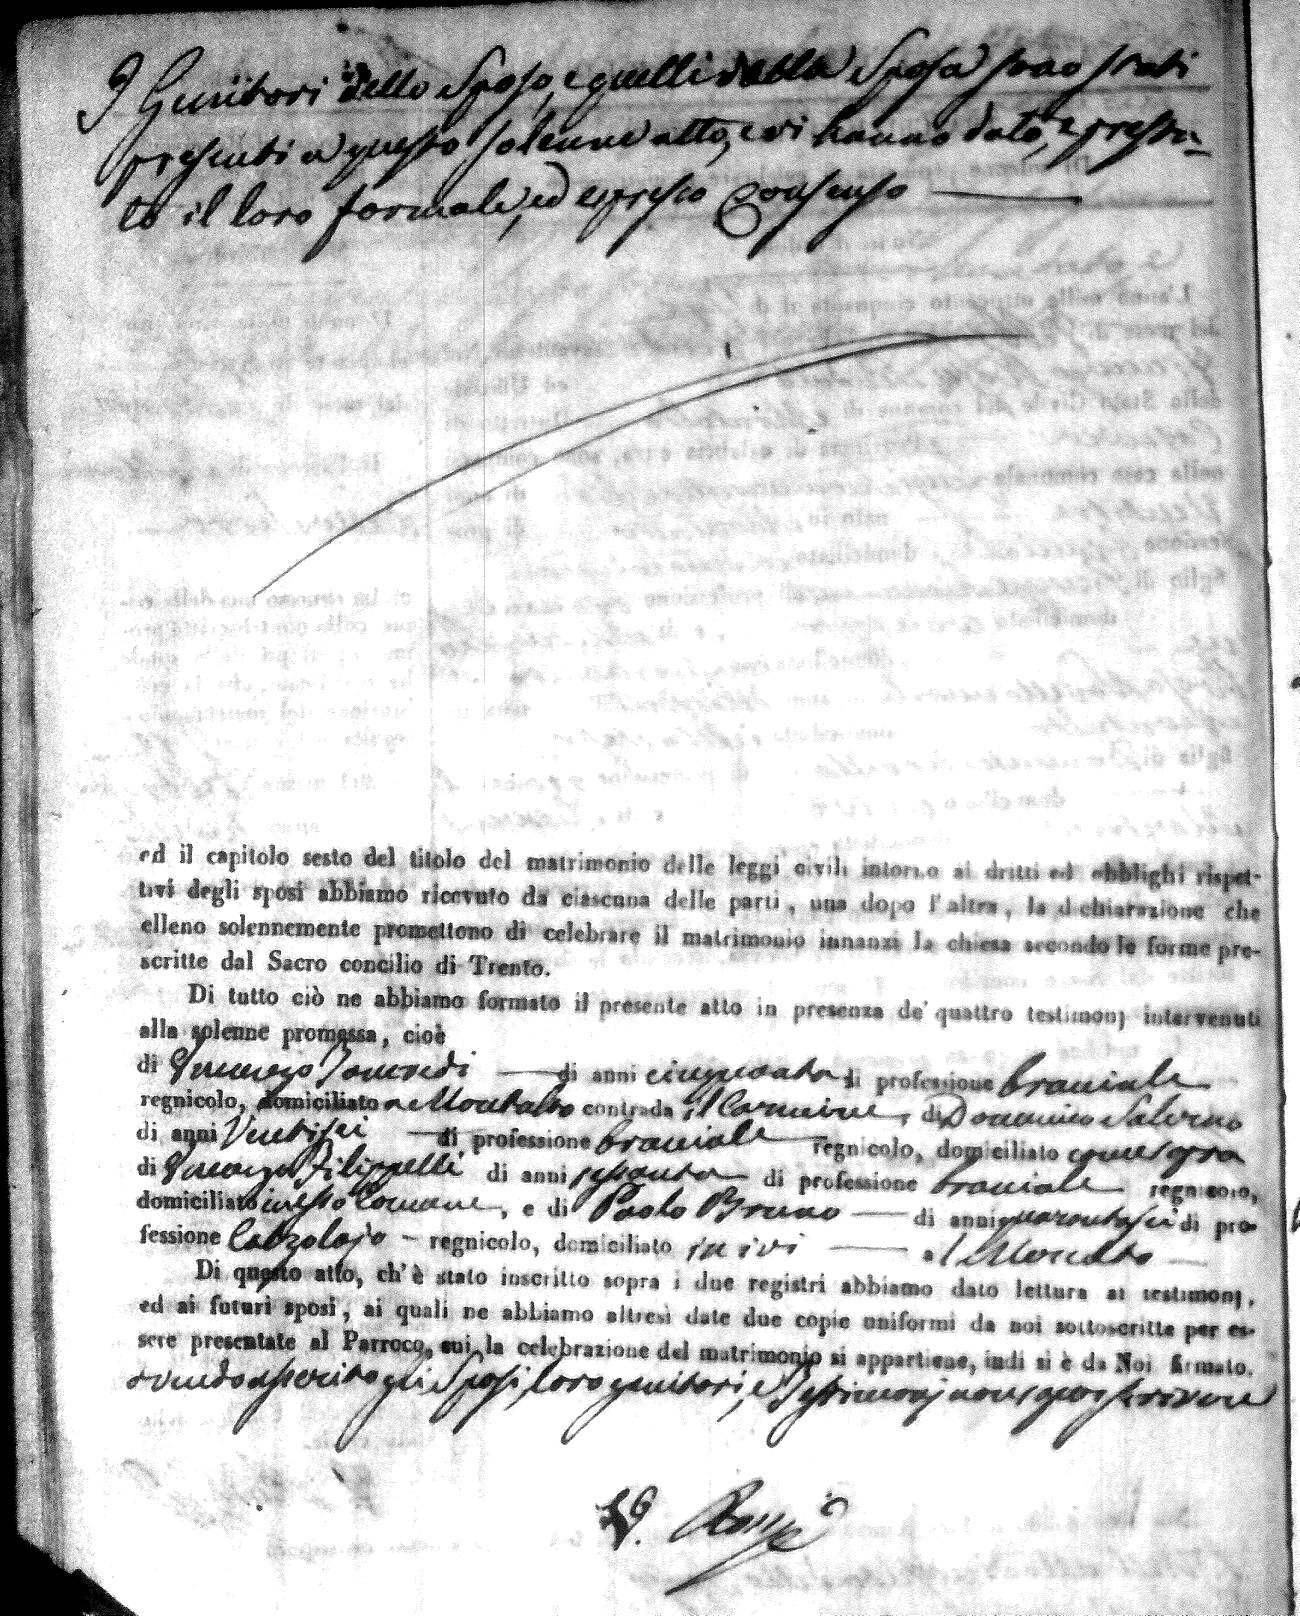 I Genitori dello Sposo, e quelli della Sposa sono stati
presenti a questo solenne atto, e vi hanno dato, e presta=
to il loro formale, ed espresso Consenso
ed il capitolo sesto del titolo del matrimonio delle leggi civili intorno ai dritti ed obblighi rispet-
tivi degli sposi abbiamo ricevuto da ciascuna delle parti, una dopo l'altra, la dichiarazione che
elleno solennemente promettono di celebrare il matrimonio innanzi la chiesa secondo le forme pre-
scritte dal Sacro concilio di Trento.
Di tutto ciò ne abbiamo formato il presente atto in presenza de' quattro testimonj intervenuti
alla solenne promessa, cioè
di di anni cinquanta di professione bracciale
regnicolo, domiciliato a Montalto contrada il Carmine, di Domenico Salerno
di anni Ventisei di professione bracciale regnicolo, domiciliato come sopra
di Filippelli di anni sessanta di professione bracciale regnicolo,
domiciliato in esso Comune, e di Paolo Bruno di anni quarantasei di pro-
fessione Calzolajo regnicolo, domiciliato in ivi
Di questo atto, ch'è stato inscritto sopra i due registri abbiamo dato lettura ai testimonj,
ed ai futuri sposi, ai quali ne abbiamo altresì date due copie uniformi da noi sottoscritte per es-
sere presentate al Parroco, cui la celebrazione del matrimonio si appartiene, indi si è da Noi firmato.
avendo asserito gli Sposi, loro genitori, e Testimonj non saper scrivere